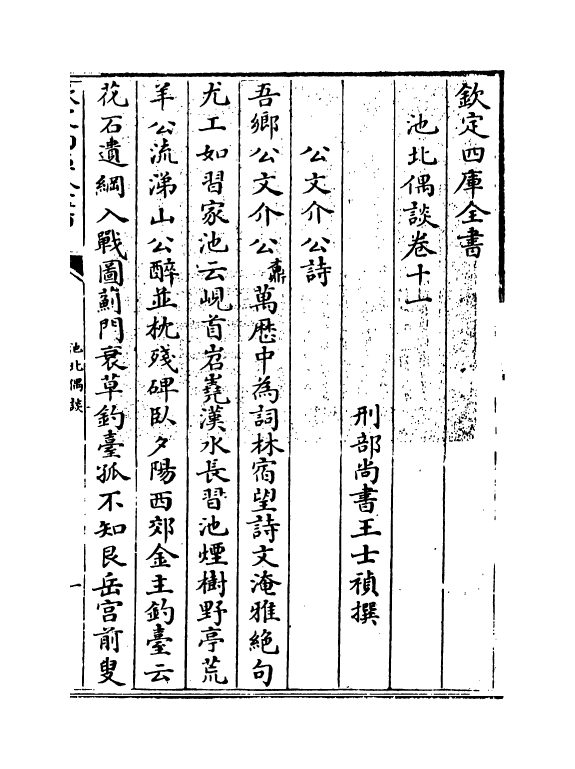 欽定四庫全書
池北偶談卷十一
刑部尚書王士禎撰
公文介公詩
吾鄉公文介公鼐萬歴中為詞林宿望詩文淹雅絶句
尤工如習家池云峴首岧嶤漢水長習池煙樹野亭荒
羊公流涕山公醉並枕殘碑臥夕陽西郊金主釣臺云
花石遺綱入戰圖薊門衰草釣臺孤不知艮岳宫前叟
池北偶談
一